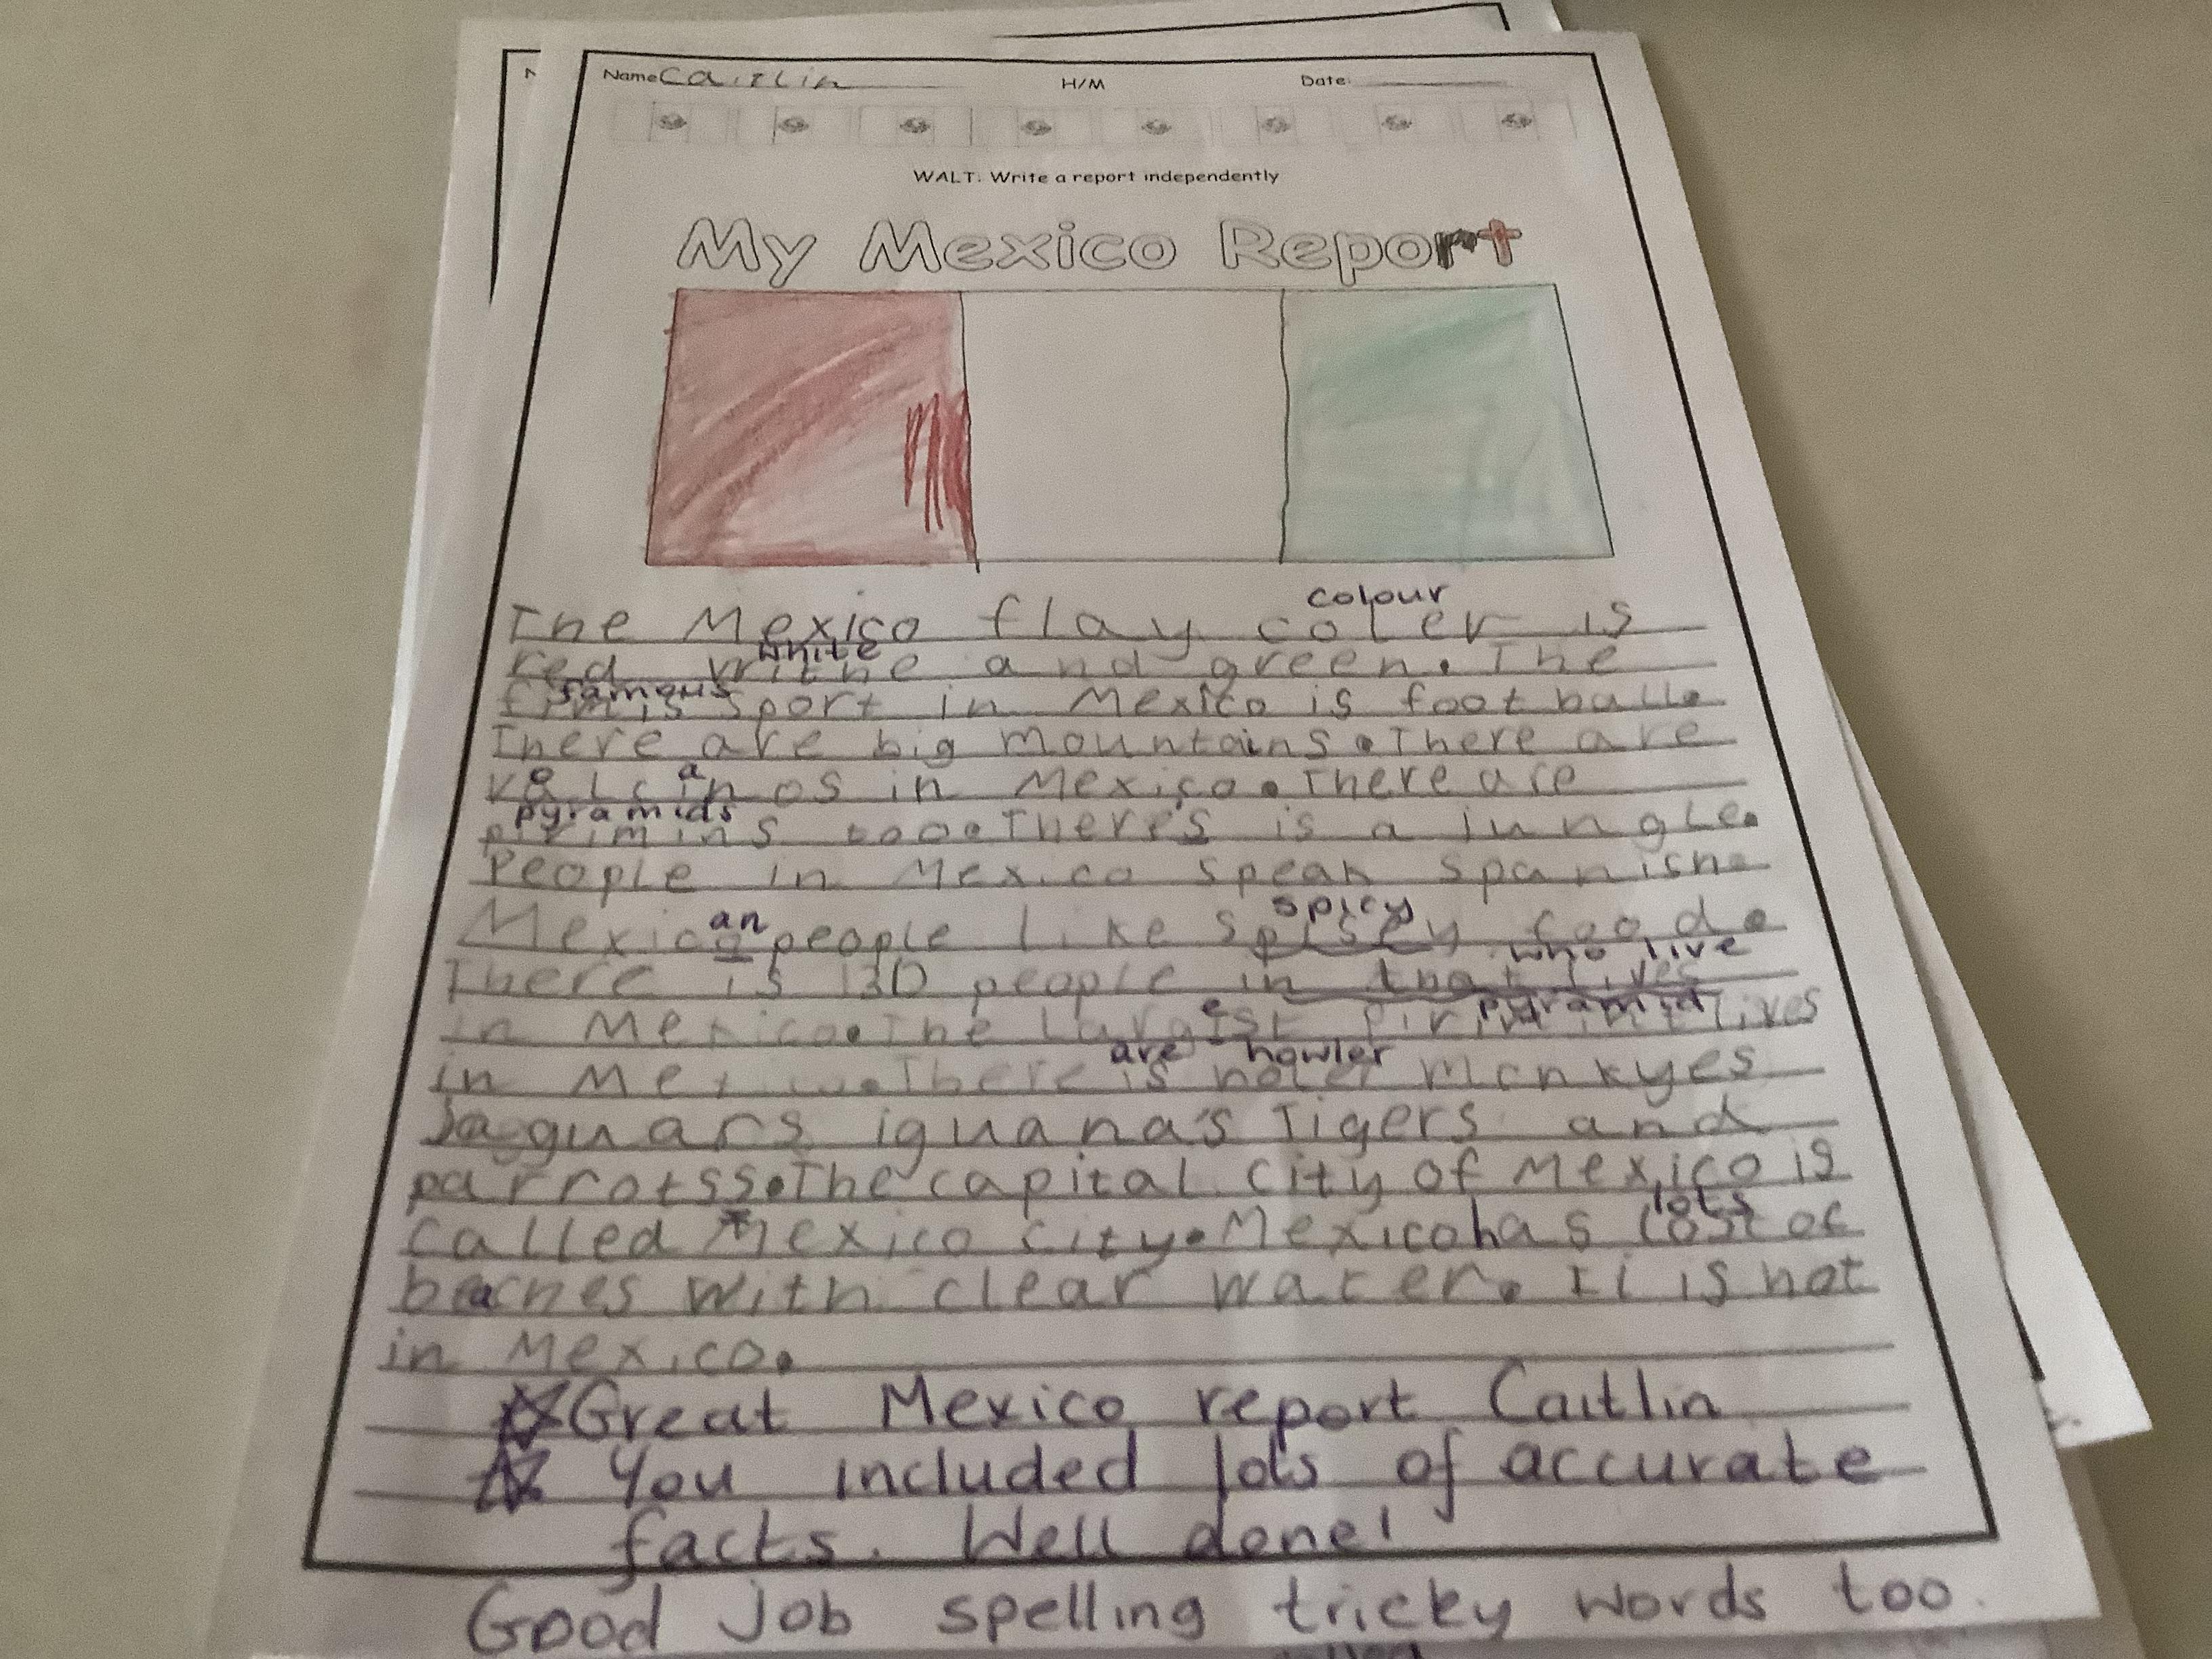 Name Caitlin H/M Date:
WALT: Write a report independently
My Mexico Report
colour
The Mexico flay coler is
white
red writhe and green. The
famous
sport in Mexico is football.
There are big mountains. There are
o a
valcinos in Mexico. There are
pyramids
pirimins too. There's is a jungle.
People in Mexico speak spanish.
an spicy
Mexico people like spisey food.
who live
There is 130 people in that lives
e pyramid
in Mexico. The largist lives
are howler
in There is holer monkyes
Jaguars iguana's Tigers and
parrotss. The capital city of Mexico is
lots
called Mexico city. Mexico has lost of
beaches with clear water. It is not
in Mexico.
Great Mexico report Caitlin
You included lots of accurate
facts. Well done!
Good job spelling tricky words too.